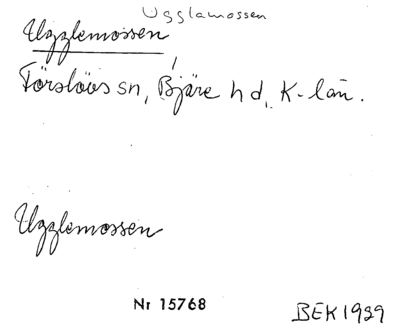 Ugglamossen
Ugglemossen
Förslövs sn, Bjäre hd, K-län.
Ugglemossen
Nr 15768
BEK 1929